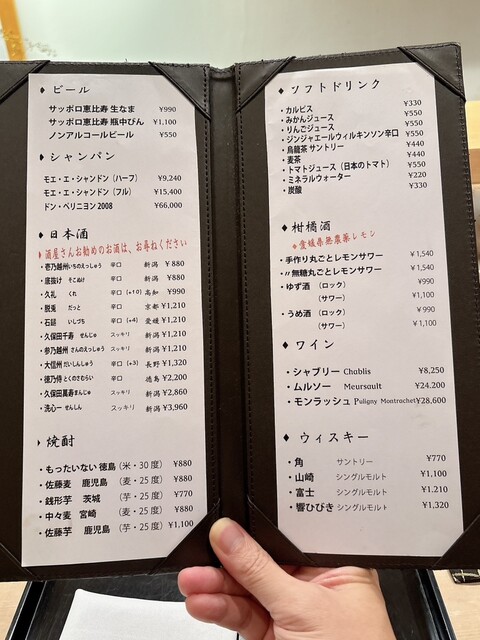 ♦ ビール
サッポロ恵比寿 生なま ¥990
サッポロ恵比寿 瓶中びん ¥1,100
ノンアルコールビール ¥550
♦ シャンパン
モエ・エ・シャンドン（ハーフ） ¥9,240
モエ・エ・シャンドン（フル） ¥15,400
ドン・ペリニヨン 2008 ¥66,000
♦ 日本酒
♦ 酒屋さんお勧めのお酒は、お尋ねください
・壱乃越州 いちのえっしゅう 辛口 新潟 ¥880
・底抜け そこぬけ 辛口 新潟 ¥880
・久礼 くれ 辛口 (+10) 高知 ¥990
・脱兎 だっと 辛口 京都 ¥1,210
・石鎚 いしづち 辛口 (+4) 愛媛 ¥1,210
・久保田千寿 せんじゅ スッキリ 新潟 ¥1,210
・参乃越州 さんのえっしゅう スッキリ 新潟 ¥1,210
・大信州 だいしんしゅう 辛口 (+3) 長野 ¥1,320
・徳乃侍 とくのさむらい 辛口 徳島 ¥2,200
・久保田萬寿 まんじゅ スッキリ 新潟 ¥2,860
・洗心ー せんしん スッキリ 新潟 ¥3,960
♦ 焼酎
・もったいない 徳島（米・30度） ¥880
・佐藤麦 鹿児島 （麦・25度） ¥880
・銭形芋 茨城 （芋・25度） ¥770
・中々麦 宮崎 （麦・25度） ¥880
・佐藤芋 鹿児島 （芋・25度） ¥1,100
♦ ソフトドリンク
・カルピス ¥330
・みかんジュース ¥550
・りんごジュース ¥550
・ジンジャエールウィルキンソン辛口 ¥550
・烏龍茶 サントリー ¥440
・麦茶 ¥440
・トマトジュース（日本のトマト） ¥550
・ミネラルウォーター ¥220
・炭酸 ¥330
♦ 柑橘酒
＊愛媛県無農薬レモン
・手作り丸ごとレモンサワー ¥1,540
・〃無糖丸ごとレモンサワー ¥1,540
・ゆず酒 （ロック） ¥990
（サワー） ¥1,100
・うめ酒 （ロック） ¥990
（サワー） ¥1,100
♦ ワイン
・シャブリー Chablis ¥8,250
・ムルソー Meursault ¥24.200
・モンラッシュ Puligny Montrachet ¥28,600
♦ ウィスキー
・角 サントリー ¥770
・山崎 シングルモルト ¥1,100
・富士 シングルモルト ¥1,210
・響ひびき シングルモルト ¥1,320